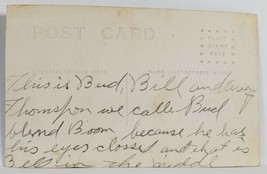 POST CARD
PLACE
STAMP
HERE
This is Bud, Bill and
Thompson we calle Bud
blond Boom because he has
his eyes closes and that is
Bell in the middl